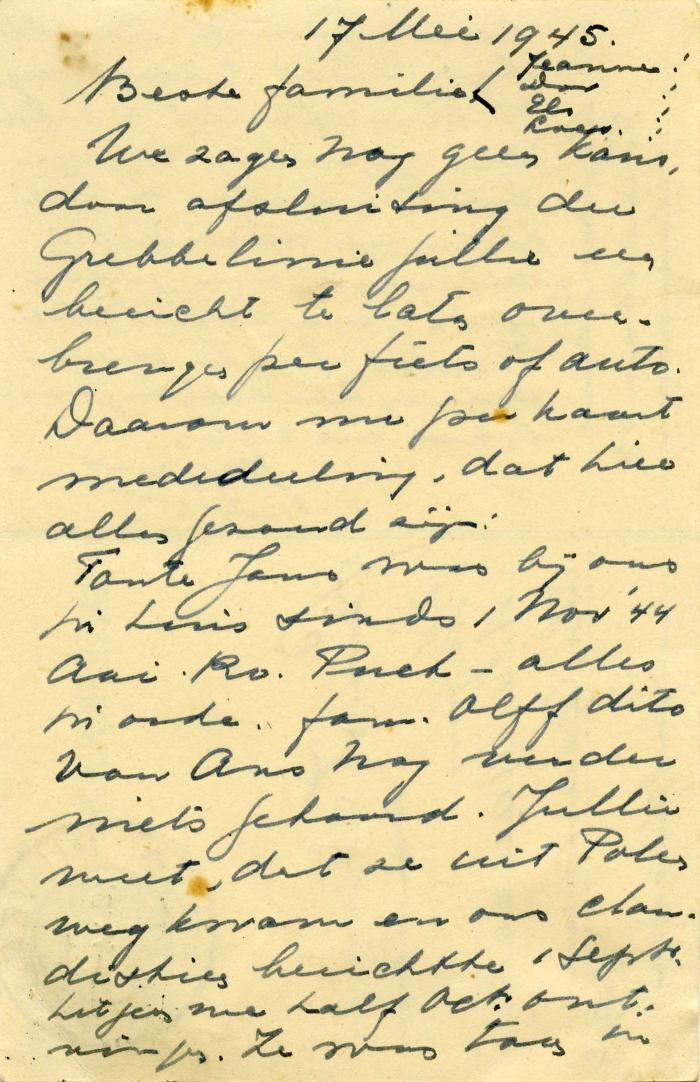 17 Mei 1945.
Beste familie { Jeanne
Dor
Els
We zagen nog geen kans,
door afsluiting der
Grebbelinie jullie een
bericht te laten over-
brengen per fiets of auto.
Daarom nu per kaart
mededeeling, dat hier
allen gezond zijn.
Tante Jans was bij ons
in huis sinds 1 Nov '44
Aai. Ro. Puck – alles
in orde. fam. Olff dito
Van Ans nog verder
niets gehoord. Jullie
weet, dat ze uit Polen
weg kwam en ons clan-
destien berichtte 1 Sept.
hetgeen we half Oct. ont-
vingen. Ze was toen in